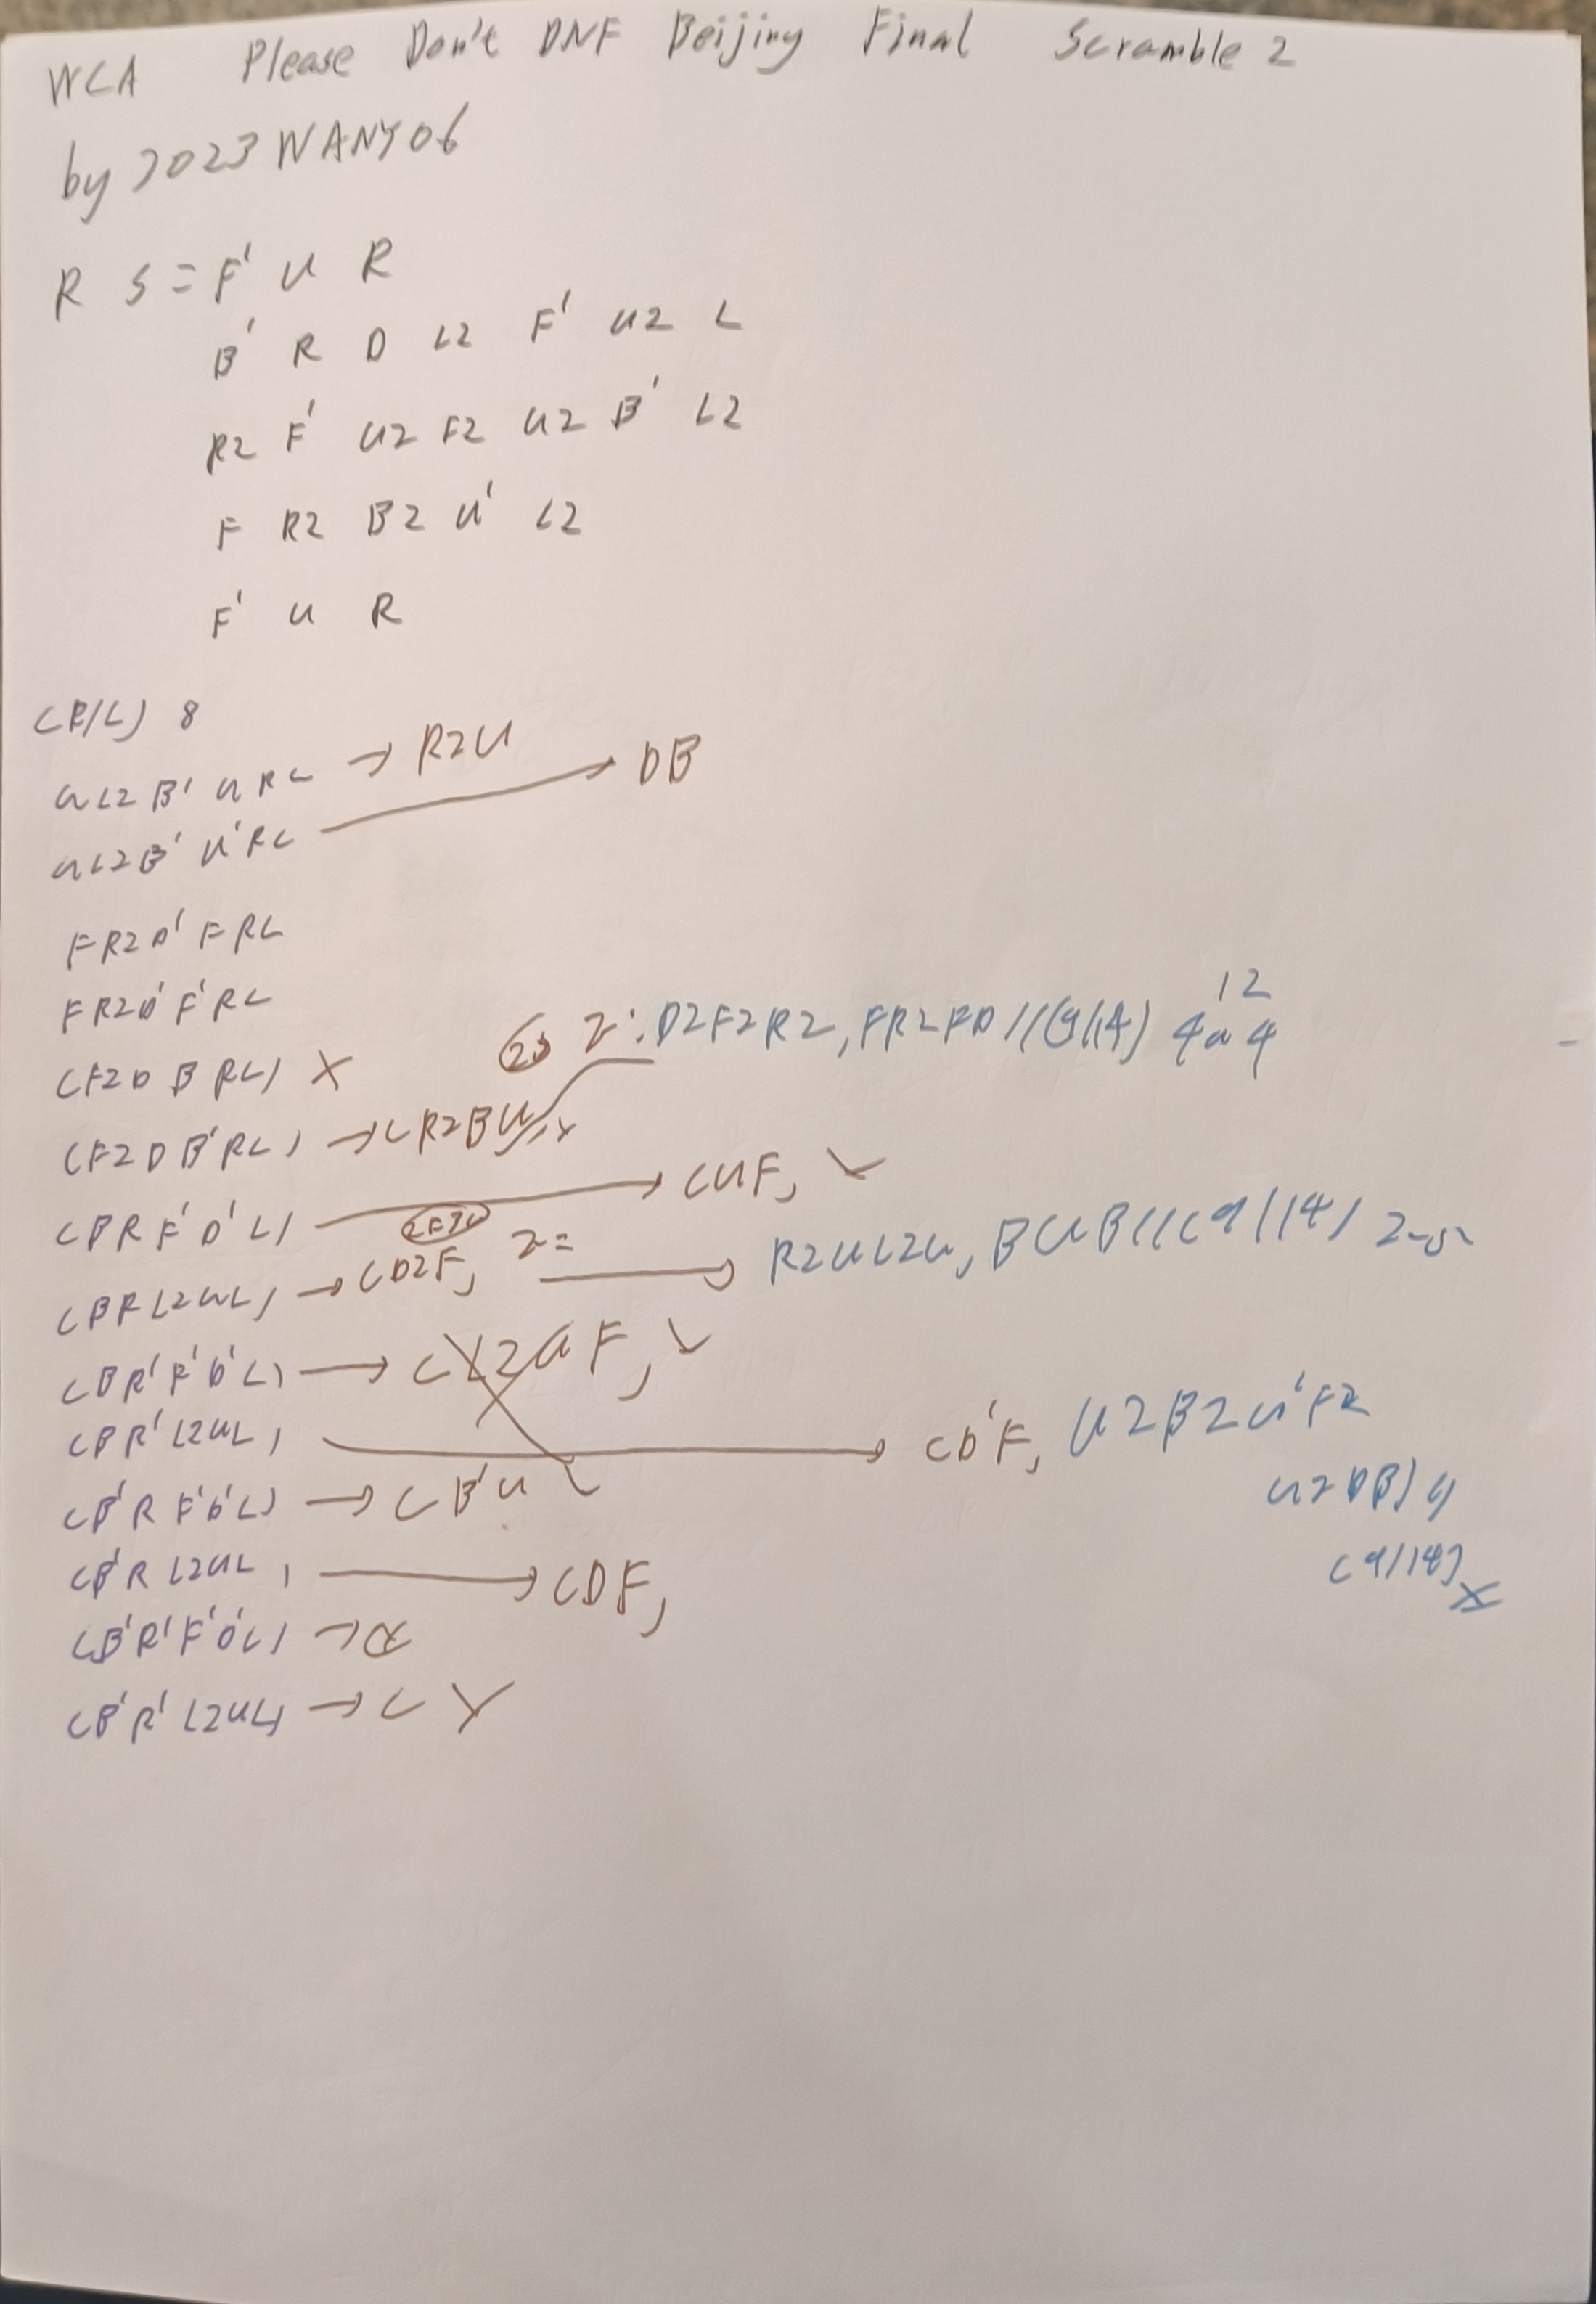 WCA Please Don't DNF Beijing Final Scramble 2
by 2023WANY06
R S = F' U R
B' R D L2 F' U2 L
R2 F' U2 F2 U2 B' L2
F R2 B2 U' L2
F' U R
(R/L) 8
U L2 B' U R L → R2U
U L2 B' U' R L → DB
F R2 D' F R L
F R2 D' F' R L
(F2 D B R L) X
2: D2F2R2, FR2FD // (9/14) 4a4
12
(F2 D B' R L) → (R2BU
(B R F' D' L) → (UF,
(B R L2 U L) → (D2F, 2= → R2UL2U, BUB // (9/14)
(B R' F' D' L) → (L2UF,
(B R' L2 U L) → (D'F, U2B2U'F2
U2DB)
(9/14) X
(B' R F' D' L) → (B'U
(B' R L2 U L) → (DF,
(B' R' F' D' L) →
(B' R' L2 U L) → (